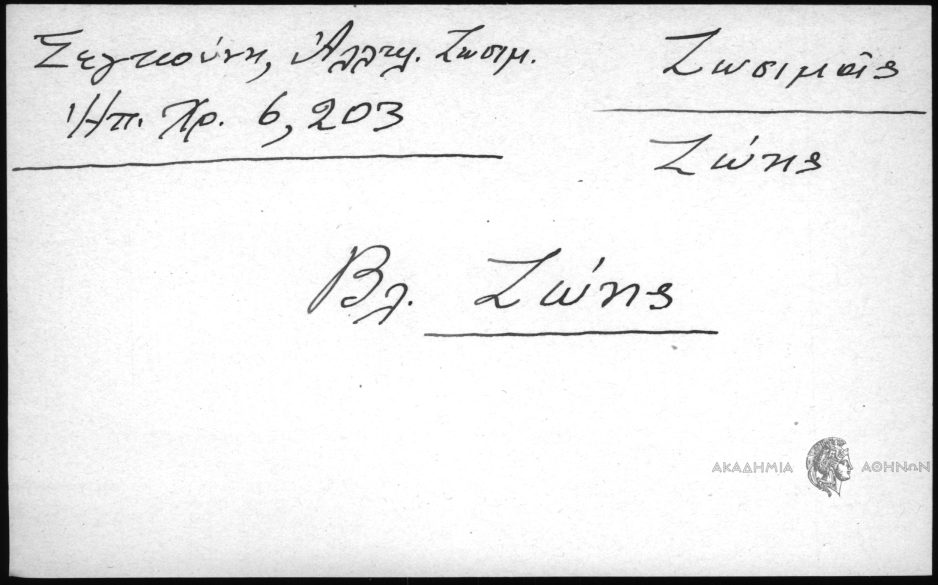 Σεγκούνη, Ἀλλτλ. Ζωσιμ.
Ἠπ. Χρ. 6, 203
Ζωσιμᾶς
Ζώης
Βλ. Ζώης
ΑΚΑΔΗΜΙΑ ΑΘΗΝΩΝ